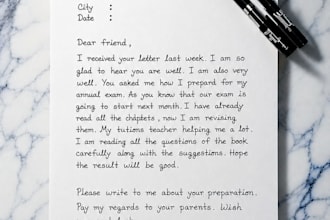 City :
Date :
Dear friend,
I received your letter last week. I am so
glad to hear you are well. I am also very
well. You asked me how I prepard for my
annual exam. As you know that our exam is
going to start next month. I have already
read all the chapters, now I am revising
them. My tutions teacher helping me a lot.
I am reading all the questions of the book
carefully along with the suggestions. Hope
the result will be good.
Please write to me about your preparation.
Pay my regards to your parents. Wish